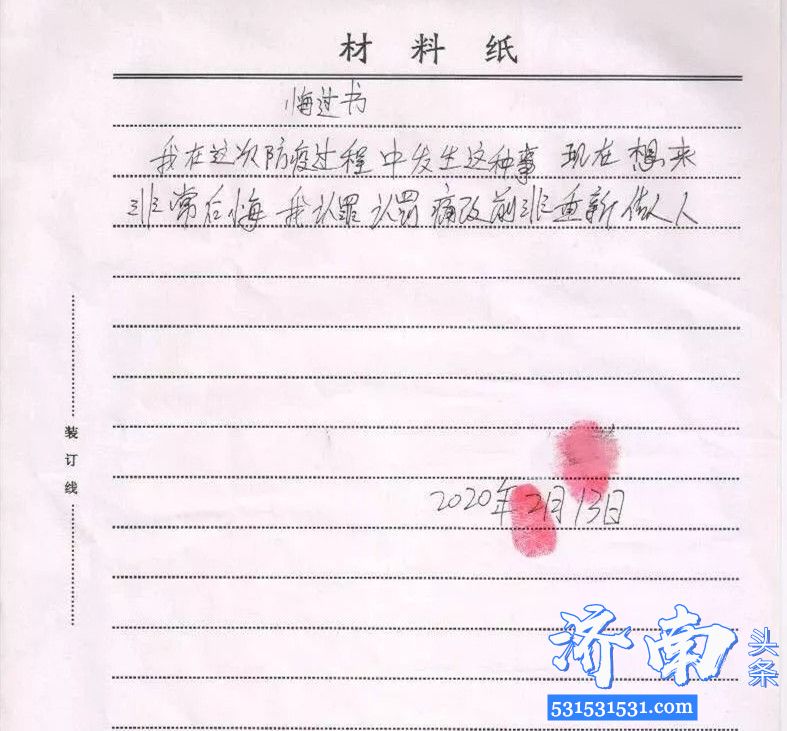 材料纸
悔过书
我在这次防疫过程中发生这种事 现在想来
非常后悔 我认罪认罚 痛改前非重新做人
2020年2月13日
装订线
济南头条
531531531.com